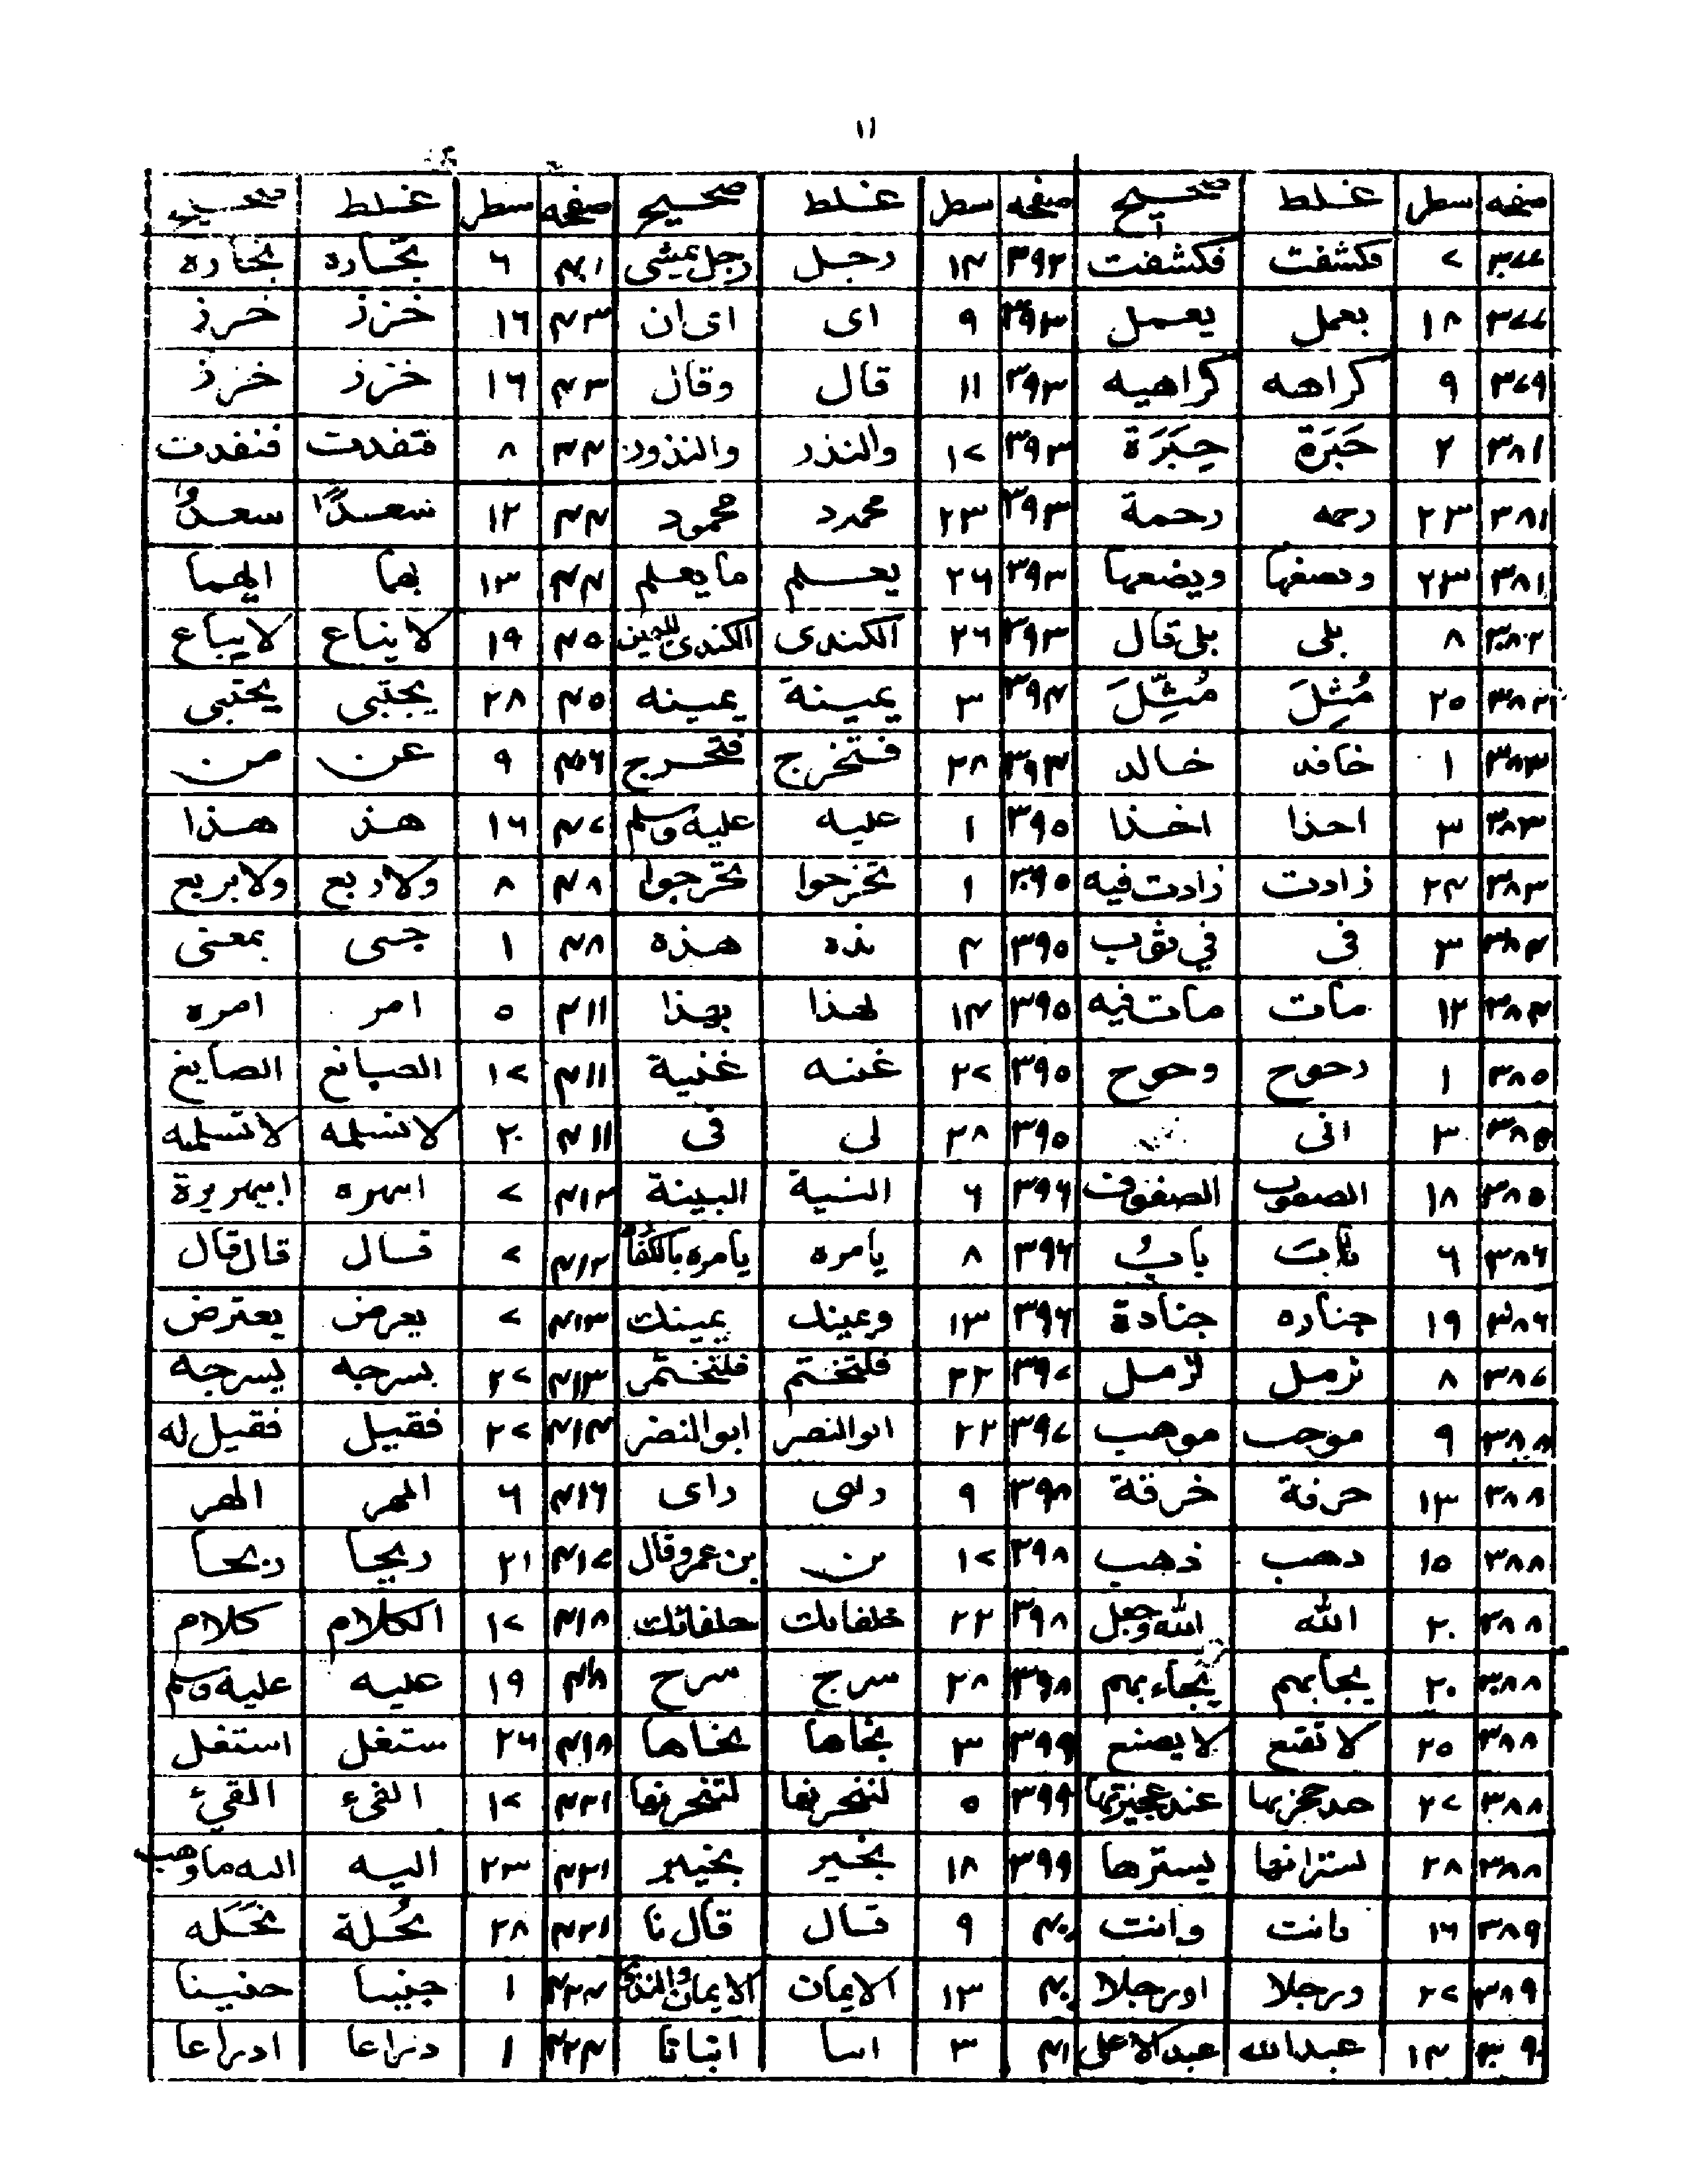 ١١
صفحه سطر غلط صحيح صفحه سطر غلط صحيح صفحه سطر غلط صحيح
٣٧٧ ٧ مكشفت فكشفت ٣٩٢ ١٤ رجل رجل يمشى ٤٠١ ٦
٣٧٧ ١٨ بعمل يعمل ٣٩٣ ٩ اى اى ان ٤٠٣ ١٦ خزز خرز
٣٧٩ ٩ كراهه كراهيه ٣٩٣ ١١ قال وقال ٤٠٣ ١٦ خزز خرز
٣٨١ ٢ حَبَرَة حِبَرَة ٣٩٣ ١٧ والنذر والنذور ٤٠٤ ٨ فتفدت فنفدت
٣٨١ ٢٣ رحمه رحمة ٣٩٣ ٢٣ محمرد محمود ٤٠٤ ١٢ سعدًا سعدٌ
٣٨١ ٢٣ ويضعها ٣٩٣ ٢٦ يعلم ما يعلم ٤٠٤ ١٣ بهما اليهما
٣٨٢ ٨ بلى بلى قال ٣٩٣ ٢٦ الكندى الكندى ٤٠٥ ١٩ لا ينباع لا يباع
٣٨٢ ٢٥ مُثِلَ مُثِّلَ ٣٩٤ ٣ يمينة يمينه ٤٠٥ ٢٨ يجتبى يحتبى
٣٨٣ ١ خافد خالد ٣٩٤ ٢٨ فتخرج فتحرج ٤٠٦ ٩ عن من
٣٨٣ ٣ احذا اخذا ٣٩٥ ١ عليه عليه وسلم ٤٠٧ ١٦ هذ هذا
٣٨٣ ٢٤ زادت زادت فيه ٣٩٥ ١ تخرحوا تحرجوا ٤٠٨ ٨ ولاربع ولا بربع
٣٨٤ ٣ فى في ثوب ٣٩٥ ٤ نده هذه ٤٠٨ ١ جسى بمعنى
٣٨٤ ١٢ مات مات فيه ٣٩٥ ١٤ لهذا بهذا ٤١١ ٥ امر امره
٣٨٥ ١ دحوح وحوح ٣٩٥ ٢٧ غننه غنية ٤١١ ١٧ الصبائغ الصايغ
٣٨٥ ٣ انى ٣٩٥ ٢٨ لى فى ٤١١ ٢٠ لا تسلمه لا تسلميه
٣٨٥ ١٨ الصفوف ٣٩٦ ٦ النية البينة ٤١٢ ٧
٣٨٦ ٦ بابٌ ٣٩٦ ٨ يامره ٤١٢ ٧ قال قال قال
٣٨٦ ١٩ جناره جنادة ٣٩٦ ١٣ وعينك يمينك ٤١٣ ٧ يعرض يعترض
٣٨٧ ٨ نرمل لزمل ٣٩٧ ٢٢ فلتختم ٤١٣ ٢٧ بسرجه يسرجه
٣٨٨ ٩ موحب موهب ٣٩٧ ٢٢ ابو النصر ابو النضر ٤١٤ ٢٧ فقيل فقيل له
٣٨٨ ١٣ حرفة خرقة ٣٩٨ ٩ راى ٤١٦ ٦ المهر الهر
٣٨٨ ١٥ دهب ذهب ٣٩٨ ١٧ بن بن عمر وقال ٤١٧ ٢١ ريحا
٣٨٨ ٢٠ الله الله وجل ٣٩٨ ٢٢ خلفانك حلفائك ٤١٨ ١٧ الكلام كلام
٣٨٨ ٢٠ يجابهم يجاء بهم ٣٩٨ ٢٨ سرج سرح ٤١٨ ١٩ عليه عليه وسلم
٣٨٨ ٢٥ لا تقنع لا يصنع ٣٩٩ ٣ ٤١٨ ٢٦ ستغل استغل
٣٨٨ ٢٧ ٣٩٩ ٥ ٤٢١ ١٧ الفىء القيء
٣٨٨ ٢٨ يسترها ٣٩٩ ١٨ بخير بخيبر ٤٢١ ٢٣ اليه
٣٨٩ ١٦ دانت وانت ٤٠٠ ٩ قال قال نا ٤٢١ ٢٨ نحُلة نحَلَه
٣٨٩ ٢٧ ورجلا او رجلا ٤٠٠ ١٣ الايمان ٤٢٤ ١
٣٩٠ ١٤ عبد الله عبد الاعلى ٤٠١ ٣ اسا انباتا ٤٢٤ ١ دراعا ادراعا